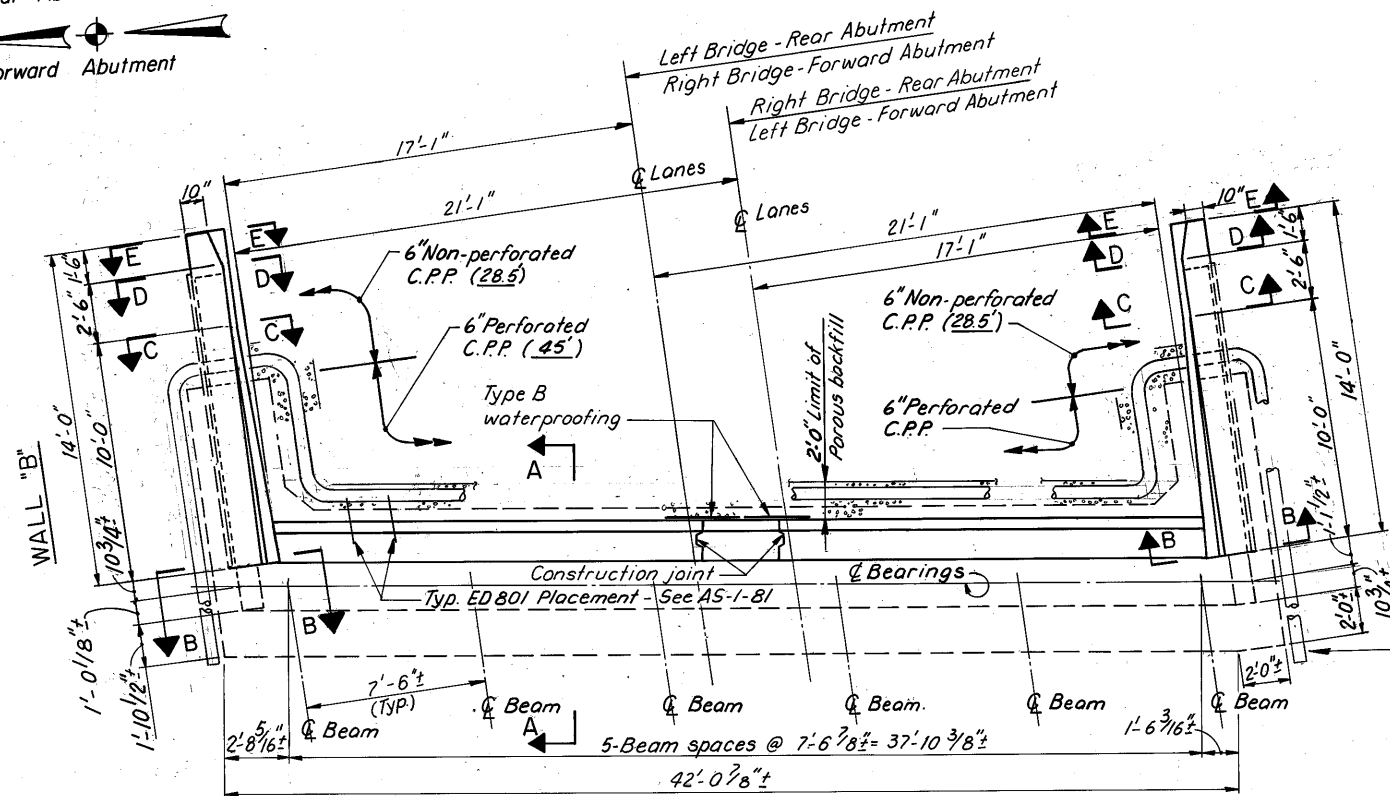 Forward Abutment
Left Bridge - Rear Abutment
Right Bridge - Forward Abutment
Right Bridge - Rear Abutment
Left Bridge - Forward Abutment
17'-1"
℄ Lanes
21'-1"
℄ Lanes
10"
10"
21'-1"
17'-1"
E
E
D
D
C
C
E
E
D
D
C
C
1'-6"
2'-6"
10'-0"
14'-0"
10 3/4"±
WALL "B"
6" Non-perforated
C.P.P. (28.5')
6" Perforated
C.P.P. (45')
Type B
waterproofing
2'-0" Limit of
Porous backfill
6" Non-perforated
C.P.P. (28.5')
6" Perforated
C.P.P.
1'-6"
2'-6"
10'-0"
14'-0"
1'-1 1/2"±
10 3/4"±
2'-0"±
A
B
B
Construction joint
℄ Bearings
Typ. ED801 Placement - See AS-1-81
B
B
1'-0 1/8"±
1'-10 1/2"±
7'-6"±
(TYP.)
2'-0"±
℄ Beam
℄ Beam
℄ Beam
℄ Beam
℄ Beam
℄ Beam
A
2'-8 5/16"±
5-Beam spaces @ 7'-6 7/8"± = 37'-10 3/8"±
1'-6 3/16"±
42'-0 7/8"±